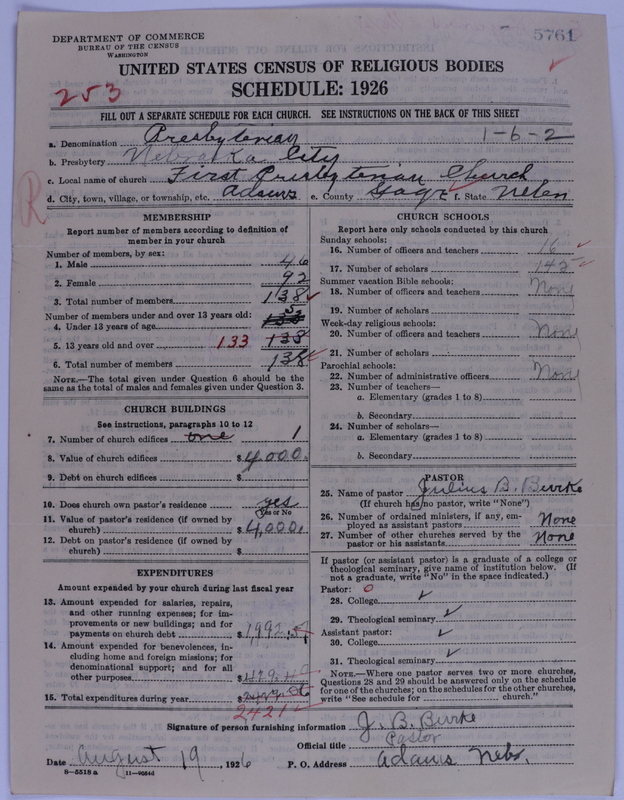 5761
DEPARTMENT OF COMMERCE
BUREAU OF THE CENSUS
WASHINGTON
UNITED STATES CENSUS OF RELIGIOUS BODIES
253
SCHEDULE: 1926
FILL OUT A SEPARATE SCHEDULE FOR EACH CHURCH. SEE INSTRUCTIONS ON THE BACK OF THIS SHEET
a. Denomination Presbyterian 1-6-2
b. Presbytery Nebraska City
c. Local name of church First Presbyterian Church
d. City, town, village, or township, etc. Adams e. County Gage f. State Nebr
R
MEMBERSHIP
Report number of members according to definition of member in your church
Number of members, by sex:
1. Male 46
2. Female 92
3. Total number of members 138
Number of members under and over 13 years old:
4. Under 13 years of age 5
5. 13 years old and over 133 138
6. Total number of members 138
NOTE.—The total given under Question 6 should be the
same as the total of males and females given under Question 3.
CHURCH BUILDINGS
See instructions, paragraphs 10 to 12
7. Number of church edifices one 1
8. Value of church edifices $4,000.
9. Debt on church edifices $
10. Does church own pastor's residence yes
(Yes or No)
11. Value of pastor's residence (if owned by
church) $4,000.
12. Debt on pastor's residence (if owned by
church) $
EXPENDITURES
Amount expended by your church during last fiscal year
13. Amount expended for salaries, repairs,
and other running expenses; for im-
provements or new buildings; and for
payments on church debt $1992.
14. Amount expended for benevolences, in-
cluding home and foreign missions; for
denominational support; and for all
other purposes $429.
15. Total expenditures during year $
2421
CHURCH SCHOOLS
Report here only schools conducted by this church
Sunday schools:
16. Number of officers and teachers 16
17. Number of scholars 142
Summer vacation Bible schools:
18. Number of officers and teachers None
19. Number of scholars
Week-day religious schools:
20. Number of officers and teachers None
21. Number of scholars
Parochial schools:
22. Number of administrative officers None
23. Number of teachers—
a. Elementary (grades 1 to 8)
b. Secondary
24. Number of scholars—
a. Elementary (grades 1 to 8)
b. Secondary
PASTOR
25. Name of pastor Julius B. Burke
(If church has no pastor, write "None")
26. Number of ordained ministers, if any, em-
ployed as assistant pastors None
27. Number of other churches served by the
pastor or his assistants None
If pastor (or assistant pastor) is a graduate of a college or
theological seminary, give name of institution below. (If
not a graduate, write "No" in the space indicated.)
Pastor: 0
28. College ✓
29. Theological seminary ✓
Assistant pastor: ✓
30. College
31. Theological seminary ✓
NOTE.—Where one pastor serves two or more churches,
Questions 28 and 29 should be answered only on the schedule
for one of the churches; on the schedules for the other churches,
write "See schedule for church."
Signature of person furnishing information J. B. Burke
Official title Pastor
Date August 19, 1926 P. O. Address Adams Nebr.
8-5518 a